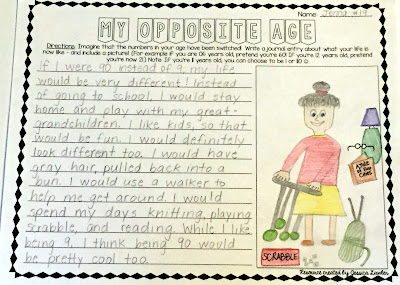 Name: Jenna #19
MY OPPOSITE AGE
Directions: Imagine that the numbers in your age have been switched. Write a journal entry about what your life is
now like - and include a picture! (For example if you are 06 years old, pretend you're 60! If you're 12 years old, pretend
you're now 21!) Note: If you're 11 years old, you can choose to be 1 or 10 ☺
If I were 90 instead of 9, my life
would be very different! Instead
of going to school, I would stay
home and play with my great-
grandchildren. I like kids, so that
would be fun. I would definitely
look different too. I would have
gray hair, pulled back into a
bun. I would use a walker to
help me get around. I would
spend my days knitting, playing
scrabble, and reading. While I like
being 9, I think being 90 would
be pretty cool too.
A TALE OF TWO CITIES
SCRABBLE
Resource created by Jessica Lawler